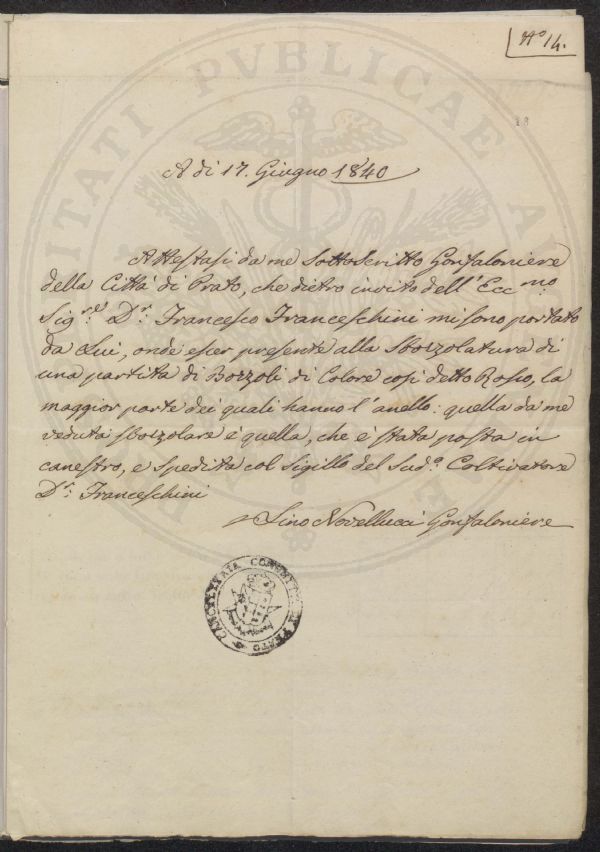 N.° 14.
18
A di 17. Giugno 1840
Attestasi da me sottoscritto Gonfaloniere
della Città di Prato, che dietro invito dell'Ecc.mo
Sig.re D.r Francesco Franceschini mi sono portato
da Lui, onde esser presente alla Sbozzolatura di
una partita di Bozzoli di Colore così detto Roseo, la
maggior parte dei quali hanno l'anello: quella da me
veduta sbozzolare è quella, che è stata posta in
canestro, e Spedita col Sigillo del Sud.o Coltivatore
D.r Franceschini
Lino Novellucci Gonfaloniere
CANCELLERIA COMUNITA DI PRATO
PUBLICAE